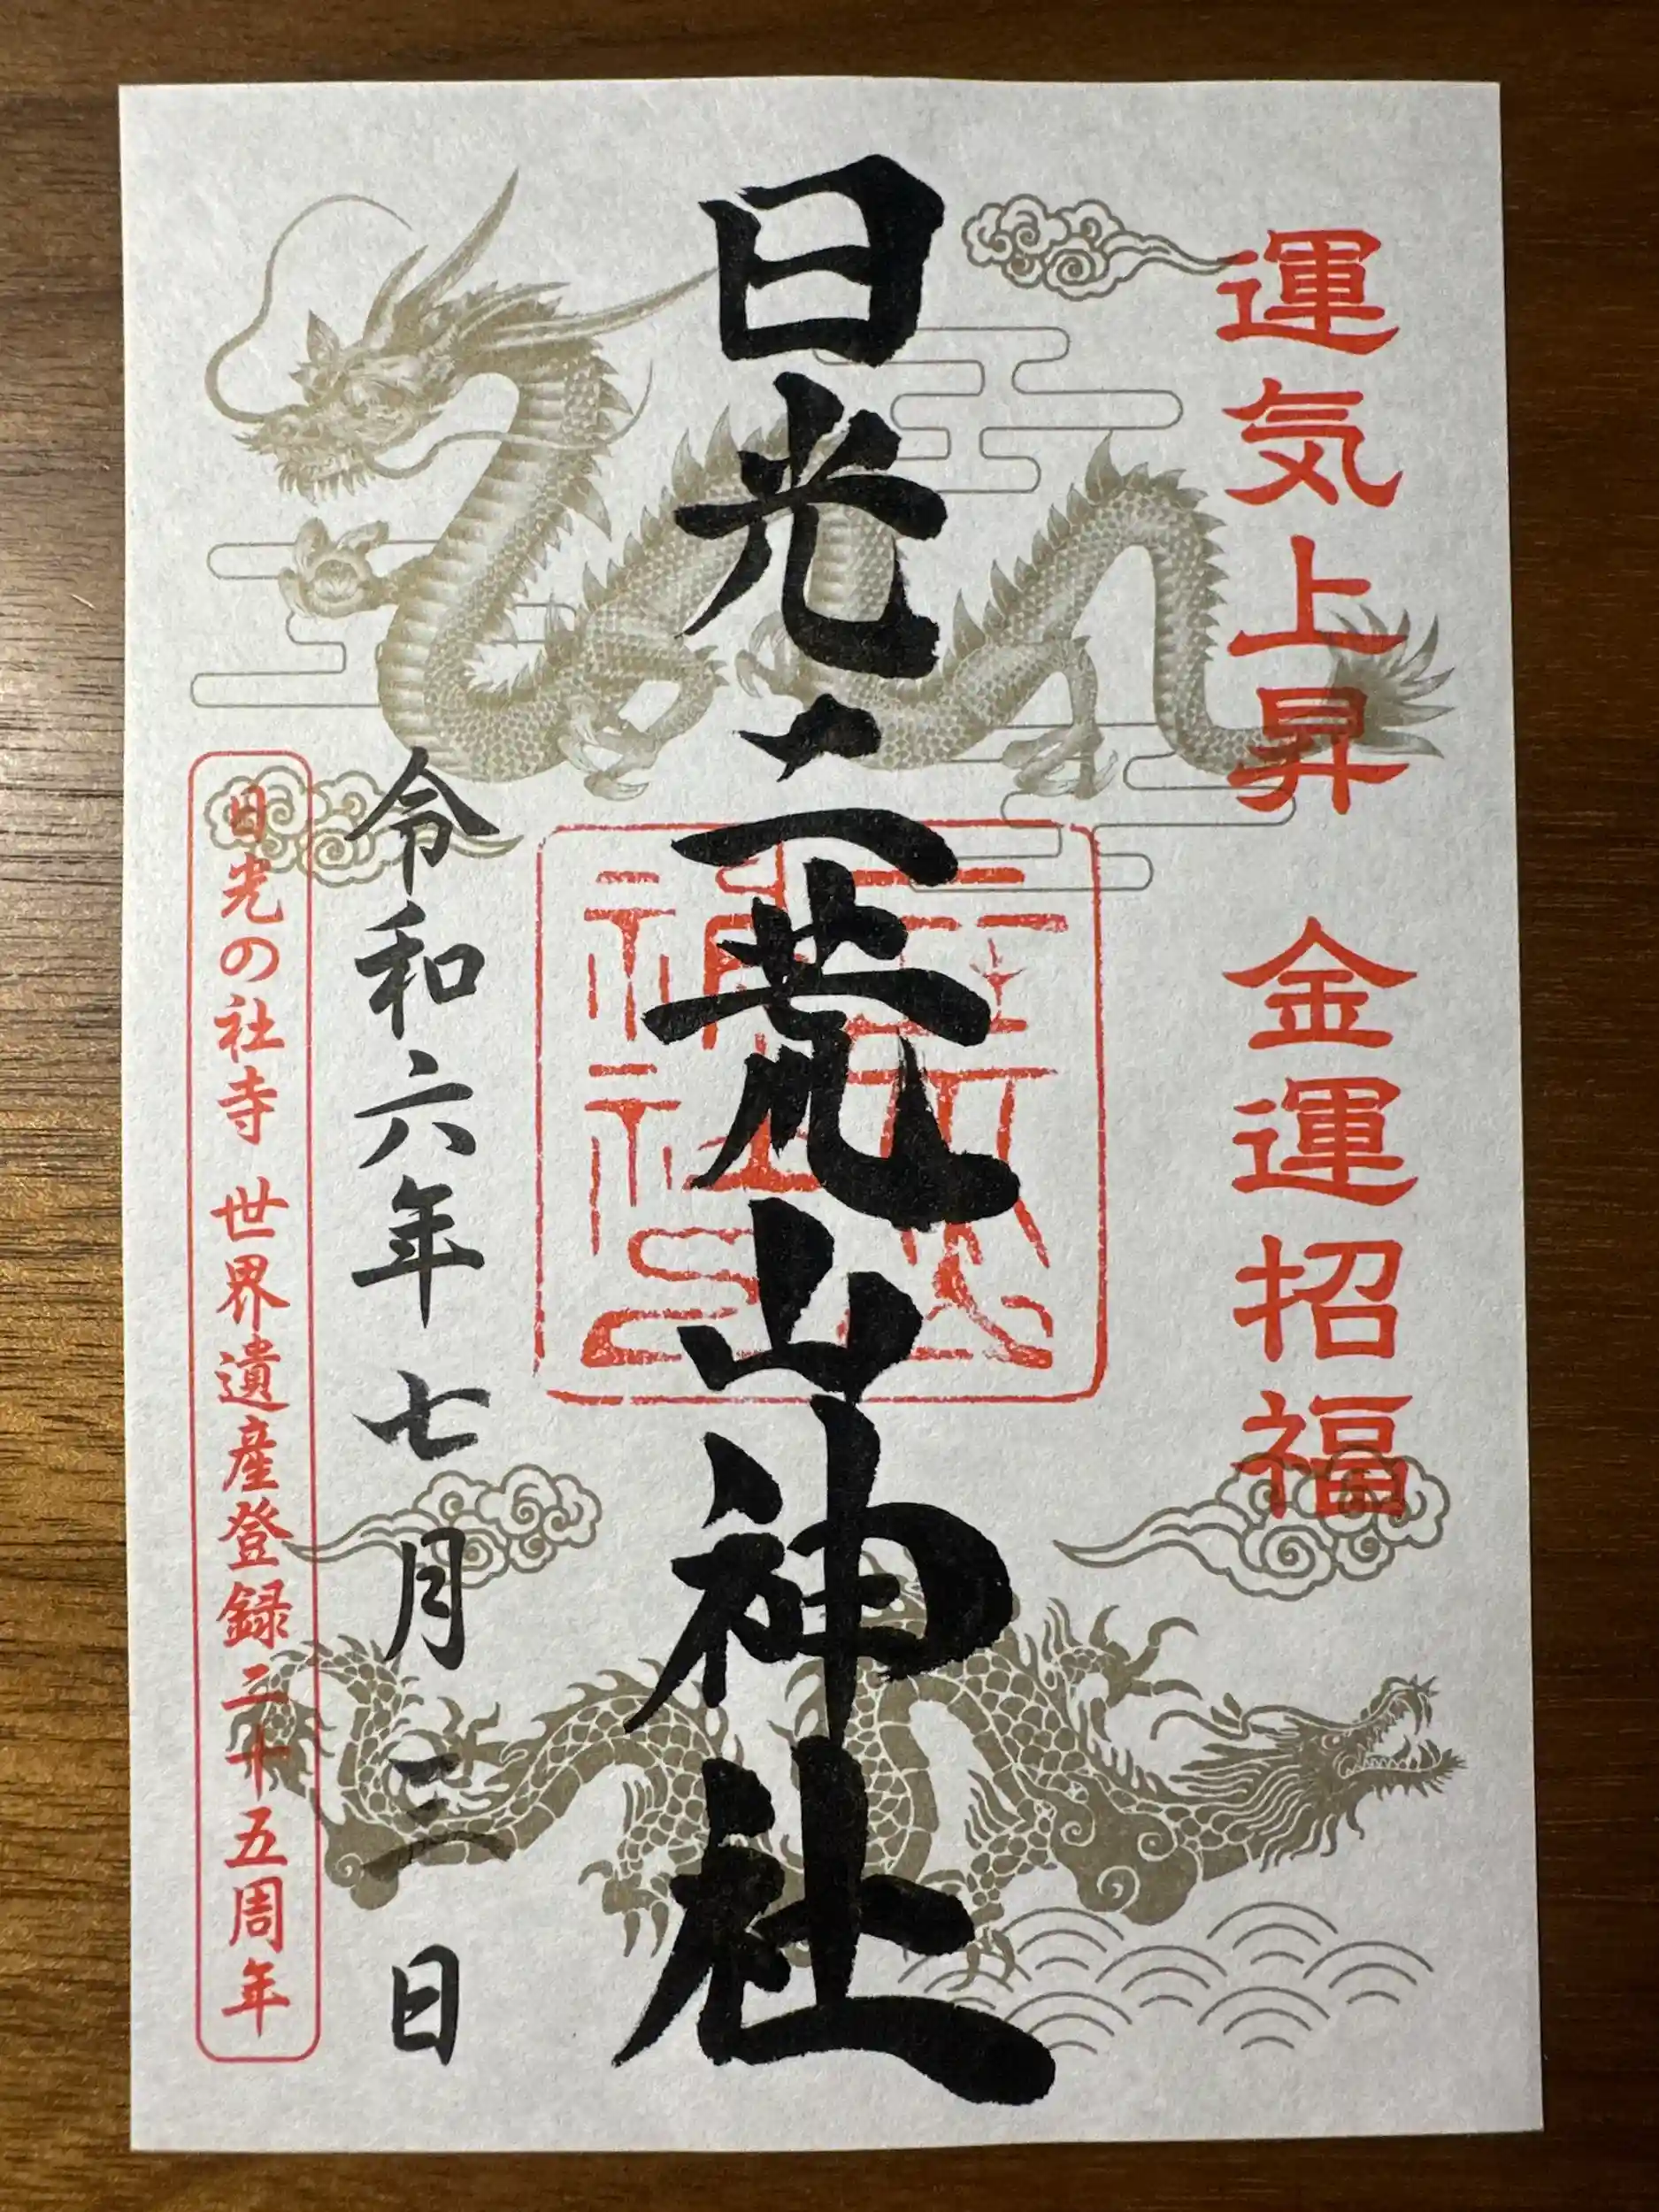 運気上昇 金運招福
日光二荒山神社
令和六年 七月三日
日光の社寺 世界遺産登録二十五周年